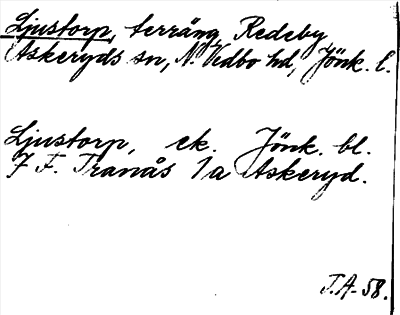 Ljustorp, terräng, Redeby,
Askeryds sn, N. Vedbo hd, Jönk. l.
Ljustorp, ek. Jönk. bl.
7 F. Tranås 1a Askeryd.
T.A-58.